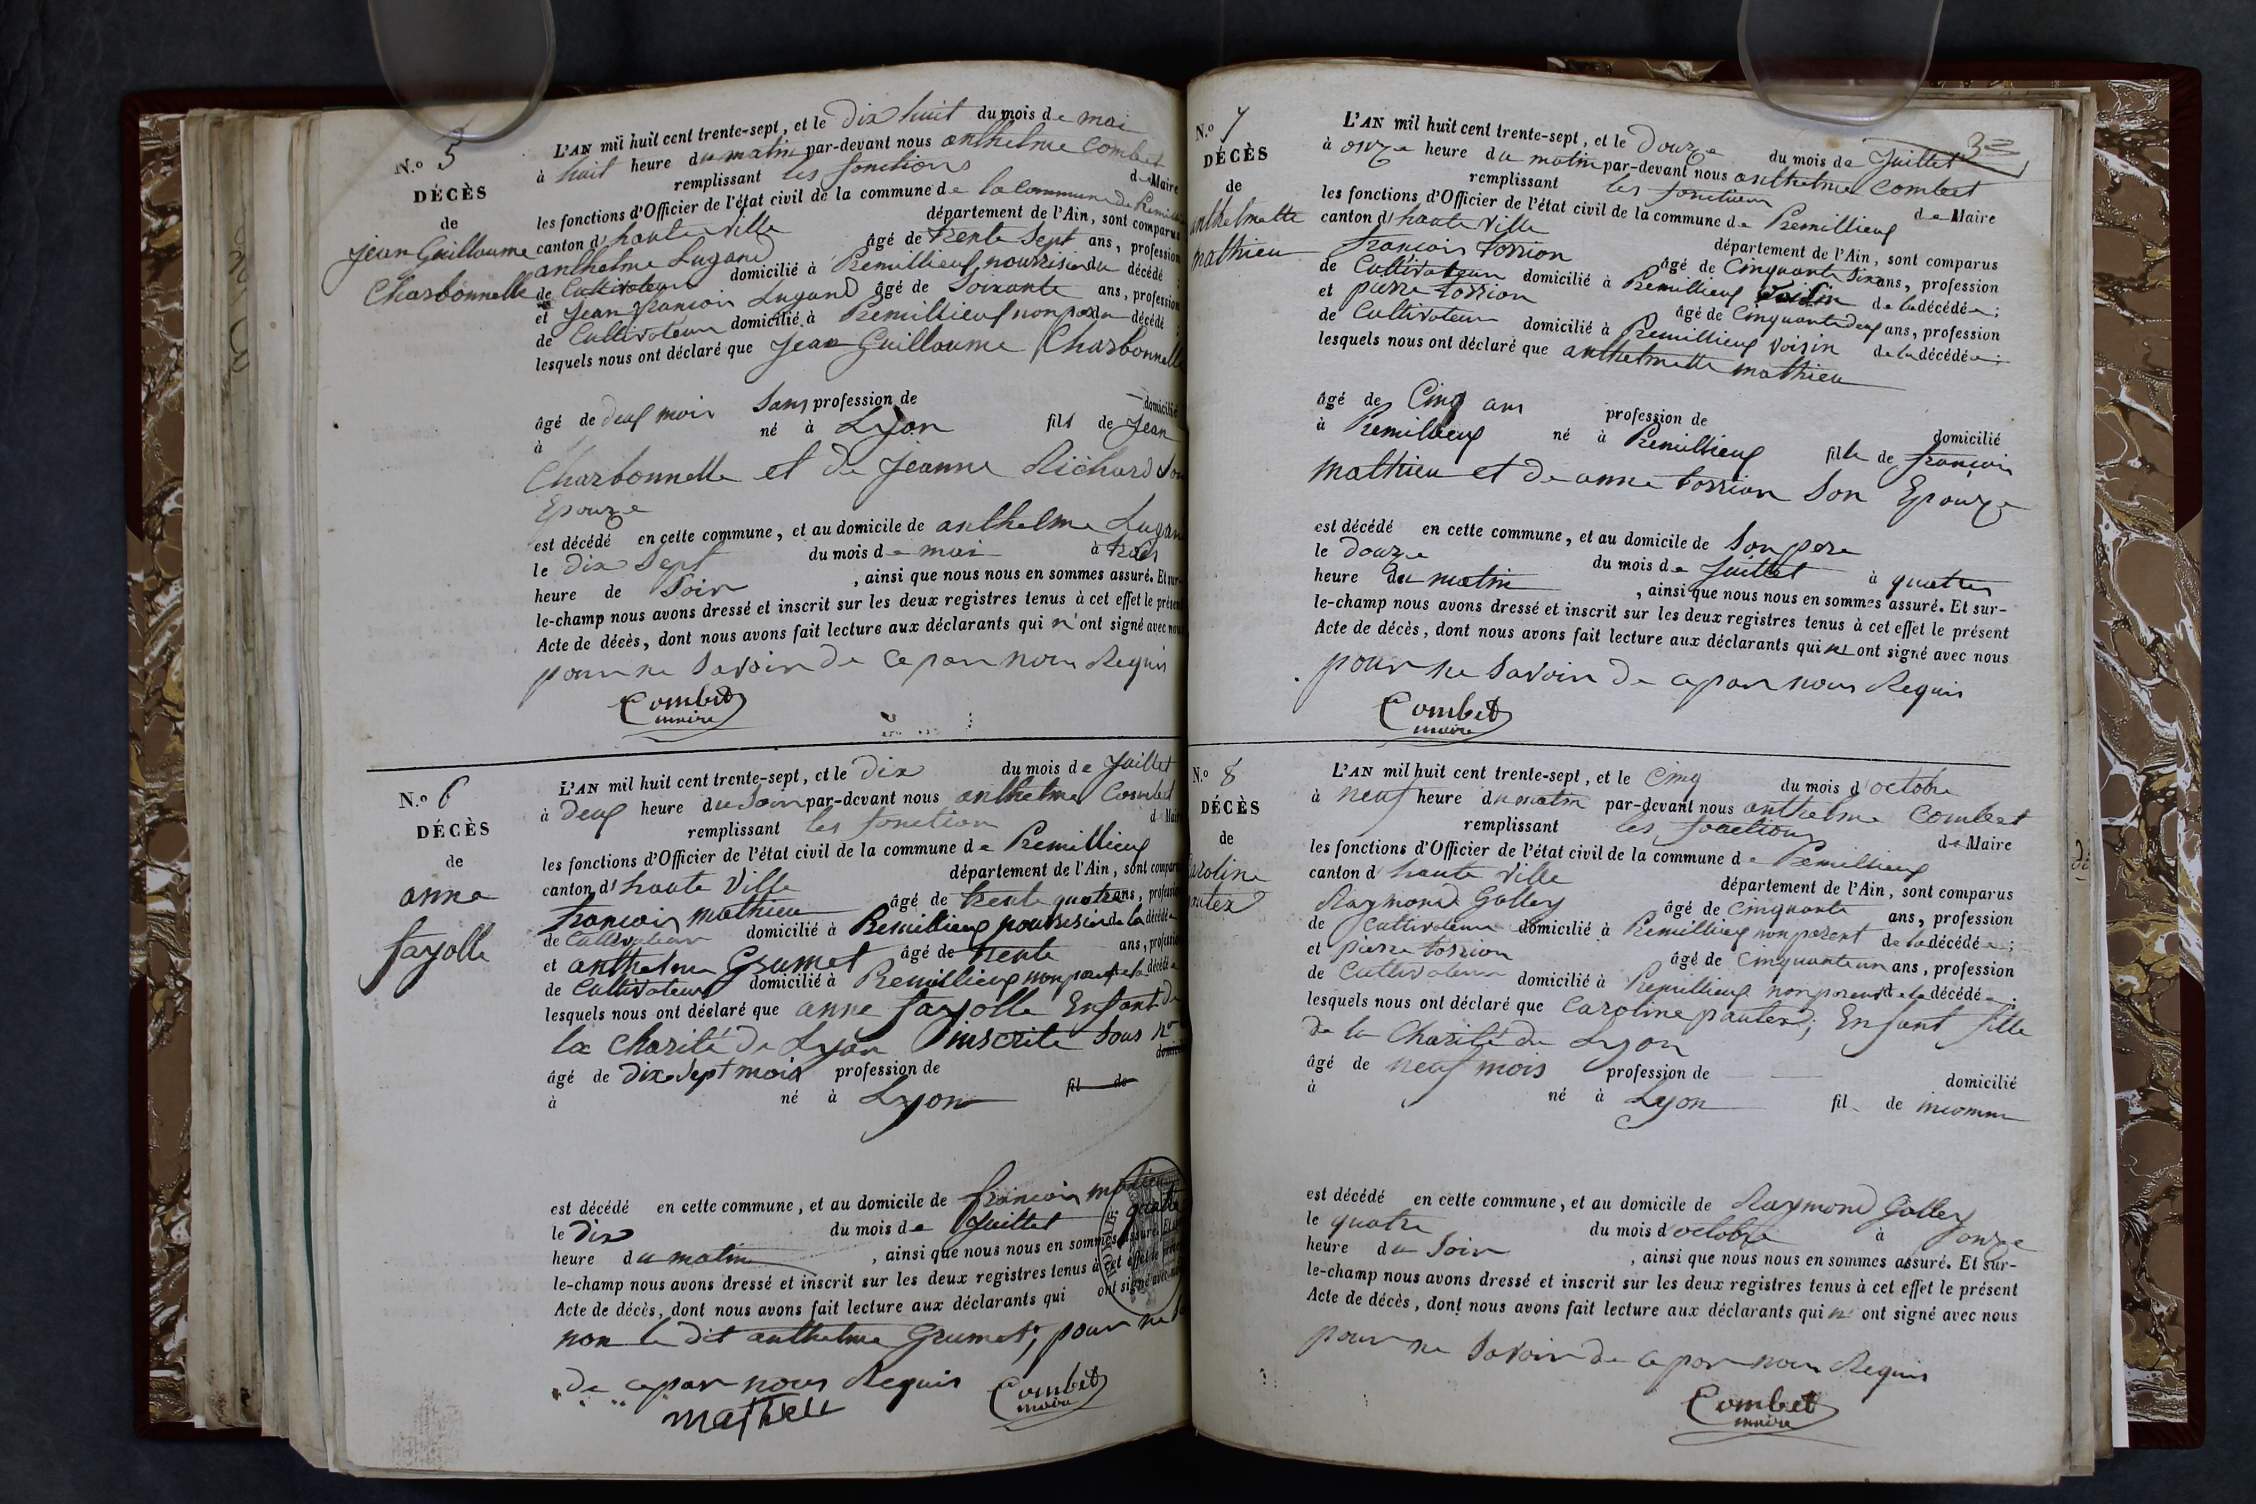 N.o 5
DÉCÈS
de
Jean Guillaume
Charbonnelle
L'AN mil huit cent trente-sept, et le Dix huit du mois de mai
à huit heure du matin par-devant nous anthelme Combet
remplissant les fonctions de Maire
les fonctions d'Officier de l'état civil de la commune de la Commune de
canton d'haute Ville département de l'Ain, sont comparus
anthelme Lugand âgé de trente Sept ans, profession
de Cultivateur domicilié à Premillieux nourrisier du décédé ;
et Jean François Lugand âgé de Soixante ans, profession
de Cultivateur domicilié à Premillieux non parent du décédé ;
lesquels nous ont déclaré que Jean Guillaume Charbonnelle
âgé de deux mois Sans profession de domicilié
à né à Lyon fils de Jean
Charbonnelle et de Jeanne Richard Son
Epouze
est décédé en cette commune, et au domicile de anthelme Lugand
le dix Sept du mois de mai à trois
heure de Soir , ainsi que nous nous en sommes assuré. Et sur-
le-champ nous avons dressé et inscrit sur les deux registres tenus à cet effet le présent
Acte de décès, dont nous avons fait lecture aux déclarants qui n'ont signé avec nous
pour ne Savoir De ce par nous Requis
Combet
maire
N.o 6
DÉCÈS
de
anne
fayolle
L'AN mil huit cent trente-sept, et le Dix du mois de Juillet
à Deux heure du Soir par-devant nous anthelme Combet
remplissant les fonction d Maire
les fonctions d'Officier de l'état civil de la commune de Premillieux
canton d'haute Ville département de l'Ain, sont comparus
françois mathieu âgé de trente quatre ans, profession
de Cultivateur domicilié à Premillieux nourrisier de la décédée
et anthelme Grumet âgé de trente ans, profession
de Cultivateur domicilié à Premillieux non parent de la décédée
lesquels nous ont déclaré que anne fayolle Enfant de
la Charité de Lyon inscrite Sous N.o
âgé de Dix Sept mois profession de domicilié
à né à Lyon fil de
est décédé en cette commune, et au domicile de françois mathieu
le Dix du mois de Juillet à quatre
heure du matin , ainsi que nous nous en sommes assuré. Et sur-
le-champ nous avons dressé et inscrit sur les deux registres tenus à cet effet le présent
Acte de décès, dont nous avons fait lecture aux déclarants qui ont signé avec nous
non le dit anthelme Grumet, pour ne
De ce par nous Requis
Mathieu
Combet
maire
3
N.o 7
DÉCÈS
de
anthelmette
mathieu
L'AN mil huit cent trente-sept, et le Douze du mois de Juillet
à onze heure du matin par-devant nous anthelme Combet
remplissant les fonction de Maire
les fonctions d'Officier de l'état civil de la commune de Premillieux
canton d'haute Ville département de l'Ain, sont comparus
françois torrion âgé de Cinquante Six ans, profession
de Cultivateur domicilié à Premillieux Voisin de la décédée ;
et pierre torrion âgé de Cinquante deux ans, profession
de Cultivateur domicilié à Premillieux Voisin de la décédée ;
lesquels nous ont déclaré que anthelmette mathieu
âgé de Cinq ans profession de domicilié
à Premillieux né à Premillieux fille de françois
mathieu et de anne torrion Son Epouze
est décédé en cette commune, et au domicile de Son père
le Douze du mois de Juillet à quatre
heure du matin , ainsi que nous nous en sommes assuré. Et sur-
le-champ nous avons dressé et inscrit sur les deux registres tenus à cet effet le présent
Acte de décès, dont nous avons fait lecture aux déclarants qui n' ont signé avec nous
pour ne Savoir De ce par nous Requis
Combet
maire
N.o 8
DÉCÈS
de
Caroline
pautex
L'AN mil huit cent trente-sept, et le Cinq du mois d'octobre
à neuf heure du matin par-devant nous anthelme Combet
remplissant les fonctions de Maire
les fonctions d'Officier de l'état civil de la commune de Premillieux
canton d'haute Ville département de l'Ain, sont comparus
Raymond Golley âgé de Cinquante ans, profession
de Cultivateur domicilié à Premillieux non parent de la décédée ;
et pierre torrion âgé de Cinquante un ans, profession
de Cultivateur domicilié à Premillieux non parent de la décédée ;
lesquels nous ont déclaré que Caroline pautex, Enfant fille
De la Charité de Lyon
âgé de neuf mois profession de domicilié
à né à Lyon fil de inconnu
est décédé en cette commune, et au domicile de Raymond Golley
le quatre du mois d'octobre à onze
heure du Soir , ainsi que nous nous en sommes assuré. Et sur-
le-champ nous avons dressé et inscrit sur les deux registres tenus à cet effet le présent
Acte de décès, dont nous avons fait lecture aux déclarants qui n' ont signé avec nous
pour ne Savoir De ce par nous Requis
Combet
maire